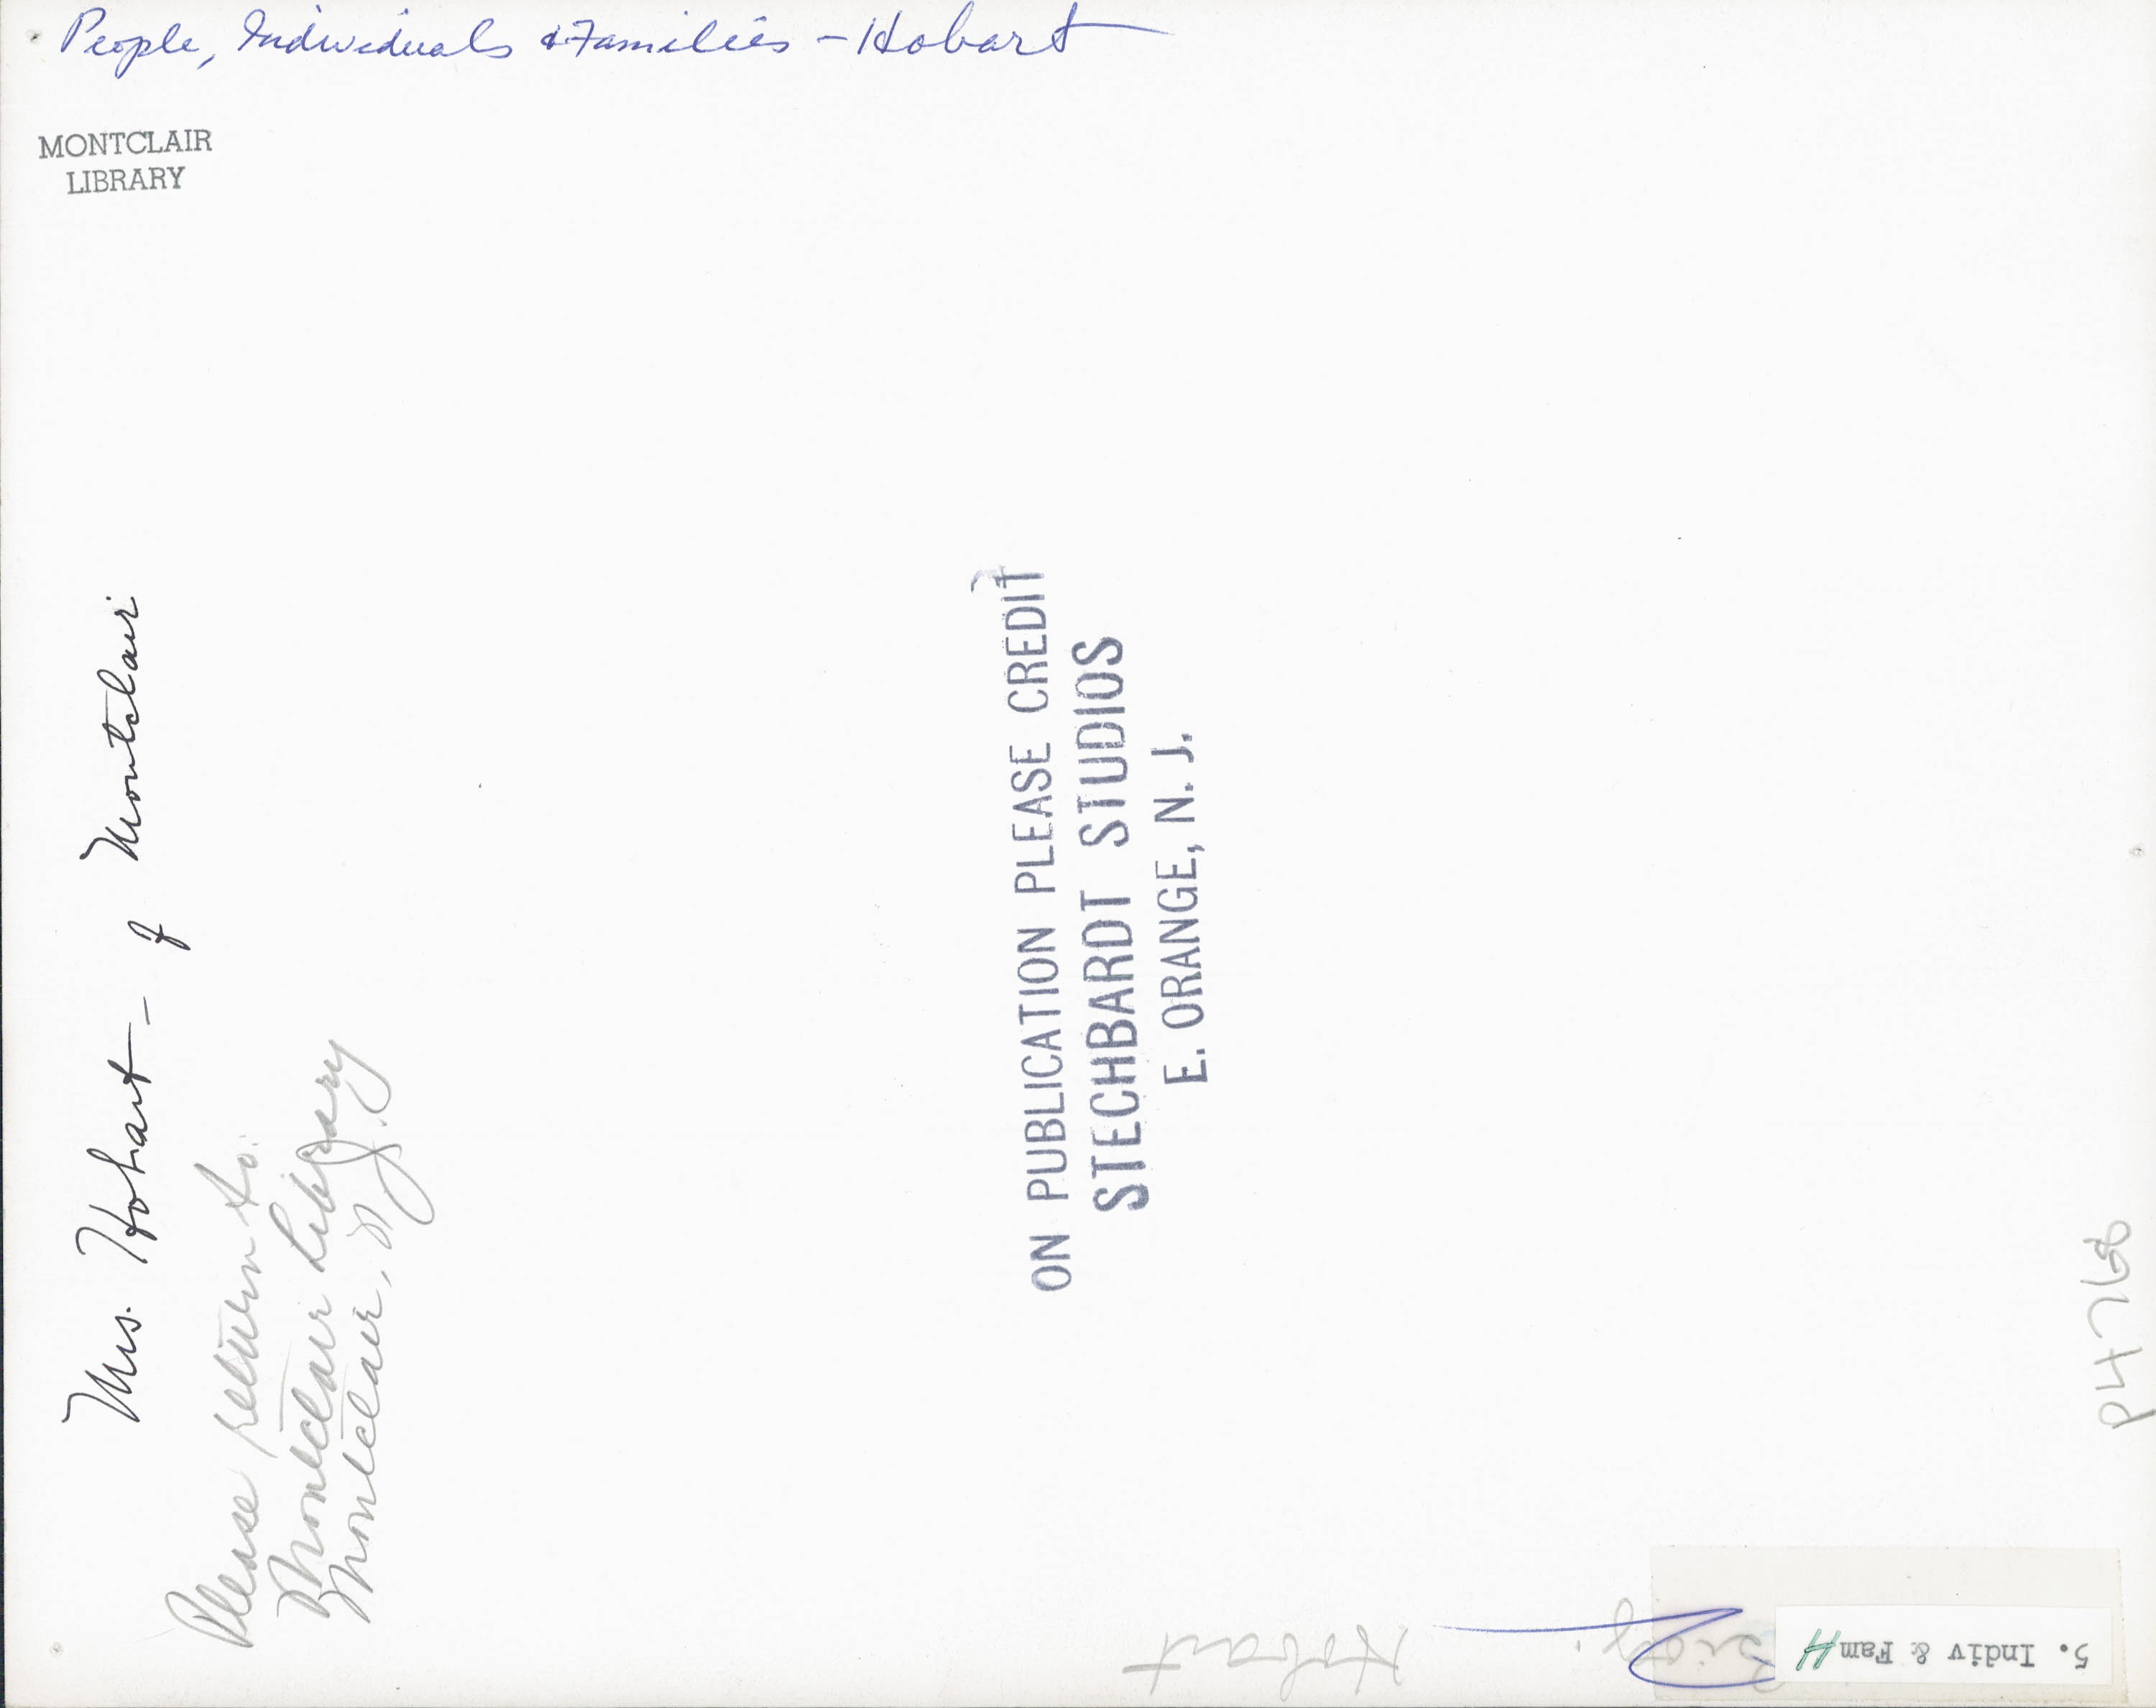 People, Individuals & Families - Hobart
MONTCLAIR
LIBRARY
Mrs. Hobart - of Montclair
Please return to:
Montclair Library
Montclair, N.J.
ON PUBLICATION PLEASE CREDIT
STECHBARDT STUDIOS
E. ORANGE, N. J.
P4768
5. Indiv & Fam H
Biog. Hobart